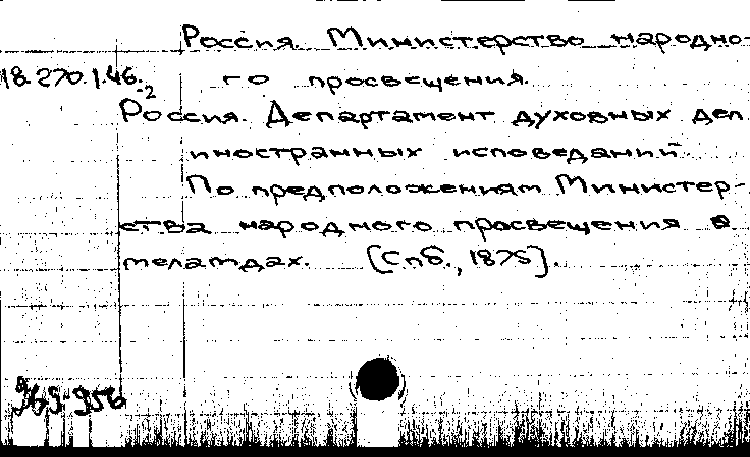 Россия. Министерство народно-
18.270.1.46.
-2
го просвещения.
Россия. Департамент духовных дел
иностранных исповеданий.
По предположениям Министер-
ства народного просвещения о
меламдах. [Спб., 1875].
969-956